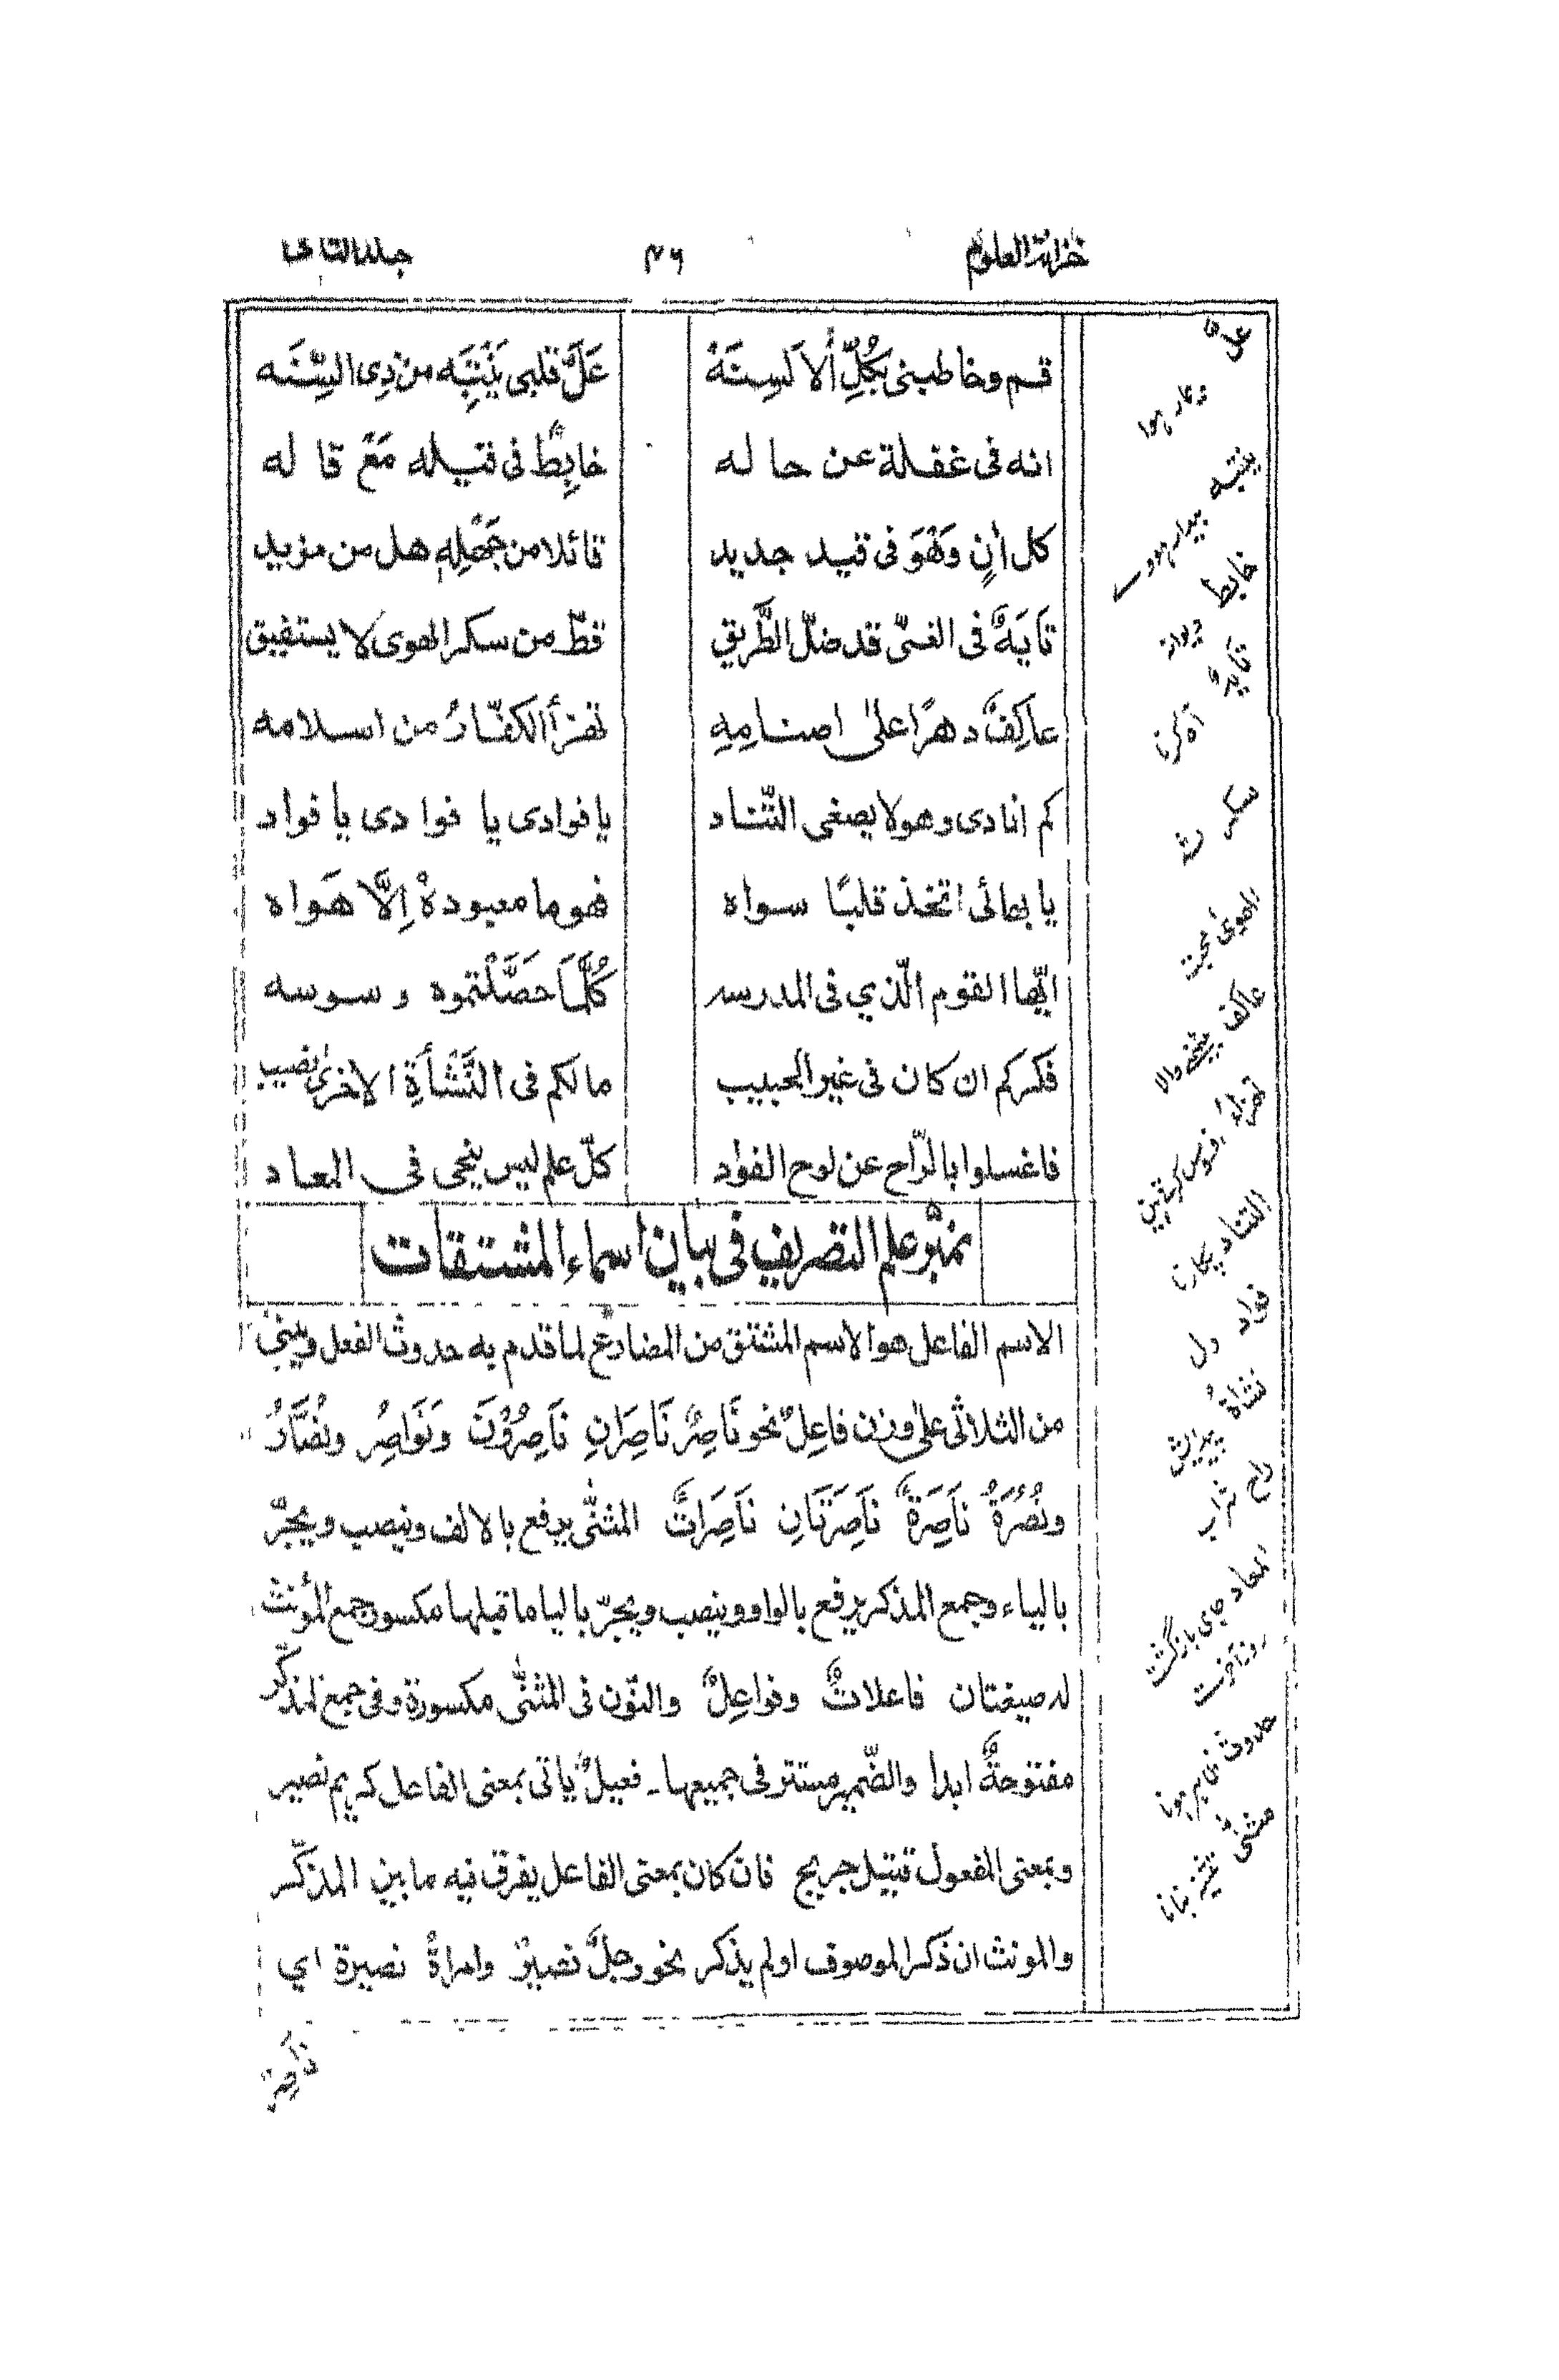 خزانۃ العلوم
۴۶
جلد الثانی
قم وخاطبنی بِكُلِّ ألاَلسِنَهْ عَلَّ قلبی يَنْتَبِه من ذِی السِّنَه
انه فی غفلة عن حا له خابِطٌ فی قیله مَعْ قا له
كل انٍ وَهْوَ فی قید جدید قائلا من جَهْلِهٖ هل من مزید
تَايَهٌ فی الغیّ قد ضلّ الطَّرِیقِ قطّ من سکر الهوی لا یستفیق
عاکِفٌ دهرًا علیٰ اصنامِهِ تهزأ الکفّارُ من اسلامه
کم انادی وهو لا یصغی التّناد یا فوادی یا فوادی یا فواد
یا بهائی اتخذ قلبًا سواه فهو ما معبودهْ اِلَّا هَواه
ایّها القوم الّذي فی المدرسه كُلَّمَا حَصَّلْتموه وسوسه
فکرکم ان کان فی غیر الحبیب مالکم فی النَّشْأَةِ الاخریٰ نصیب
فاغسلوا بالرّاح عن لوح الفؤاد کلّ علم لیس ینجی فی المعاد
نمبر علم التصریف فی بیان اسماء المشتقات
الاسم الفاعل هو الاسم المشتق من المضارع لما قدم به حدوث الفعل ویبنیٰ
من الثلاثی علیٰ وزن فاعِلٌ نحو نَاصِرٌ نَاصِرَانِ نَاصِرُوْنَ وَنَوَاصِرُ ونُصَّارُ
ونُصُرَةٌ نَاصِرَةٌ نَاصِرَتَانِ نَاصِرَاتٌ المثنّٰی یرفع بالالف وینصب ویجرّ
بالیاء وجمع المذکر یرفع بالواو وینصب ویجرّ بالیا ما قبلها مکسور جمع المؤنث
له صیغتان فاعلاتٌ وفواعِلٌ والنّون فی المثنّٰی مکسورة وفی جمع المذکّر
مفتوحةٌ ابدا والضّمیر مستتر فی جمیعها۔ فعیلٌ یاتی بمعنی الفاعل کریم نصیر
وبمعنی المفعول قتیل جریح فان کان بمعنی الفاعل یفرق فیه ما بین المذکّر
والمونث ان ذکر الموصوف او لم یذکر نحو رجلٌ نصیرٌ وامراةٌ نصیرة اي
ناصرة
علّ
ینتبه
بیدار ہووے
خابط
دیوانہ
سکر
نشہ
عاکف بیٹھنے والا
التناد پکارنا
فواد دل
نشاة پیدایش
راح شراب
معاد جای بازگشت
روز آخرت
حدوث
مثنیٰ تثنیہ بنانا